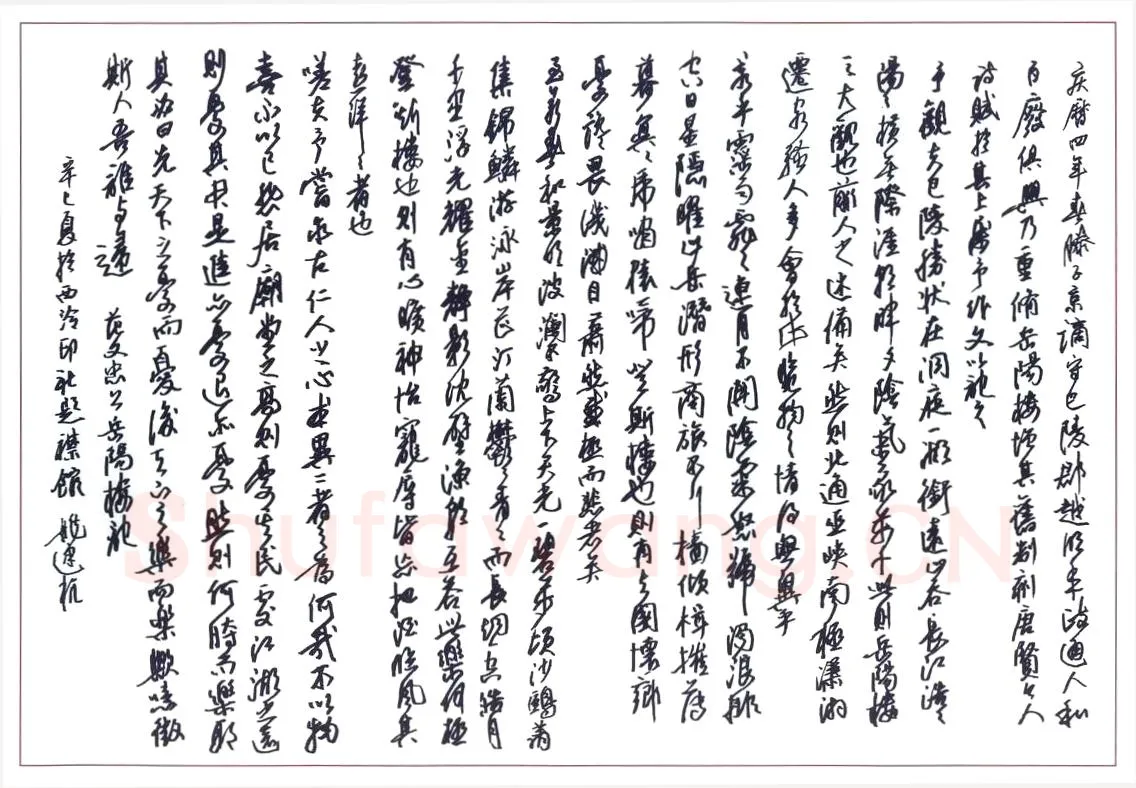 庆历四年春滕子京谪守巴陵郡越明年政通人和
百废俱兴乃重脩岳陽楼增其舊制刻唐賢今人
诗赋於其上属予作文以記之
予觀夫巴陵勝状在洞庭一湖銜遠山吞長江浩々
湯々横無際涯朝晖夕陰氣象万千此則岳陽楼
之大觀也前人之述備矣然則北通巫峡南極瀟湘
遷客騷人多會於此览物之情得無異乎
若夫霪雨霏々連月不開陰風怒號濁浪排
空日星隱曜山岳潛形商旅不行樯傾楫摧薄
暮冥々虎啸猿啼登斯樓也則有去國懷鄉
憂谗畏譏满目蕭然感極而悲者矣
至若春和景明波瀾不驚上下天光一碧万頃沙鷗翔
集錦鱗游泳岸芷汀蘭鬱々青々而長烟一空皓月
千里浮光耀金静影沈璧漁歌互答此樂何極
登斯楼也則有心曠神怡寵辱皆忘把酒临風其
喜洋々者也
嗟夫予嘗求古仁人之心或異二者之為何哉不以物
喜不以己悲居廟堂之高則憂其民處江湖之遠
則憂其君是進亦憂退亦憂然則何時而樂耶
其必曰先天下之憂而憂後天下之樂而樂歟噫微
斯人吾誰與歸 范文忠公岳陽樓記
辛巳夏於西泠印社題襟館 建杭
Shufawang.CN